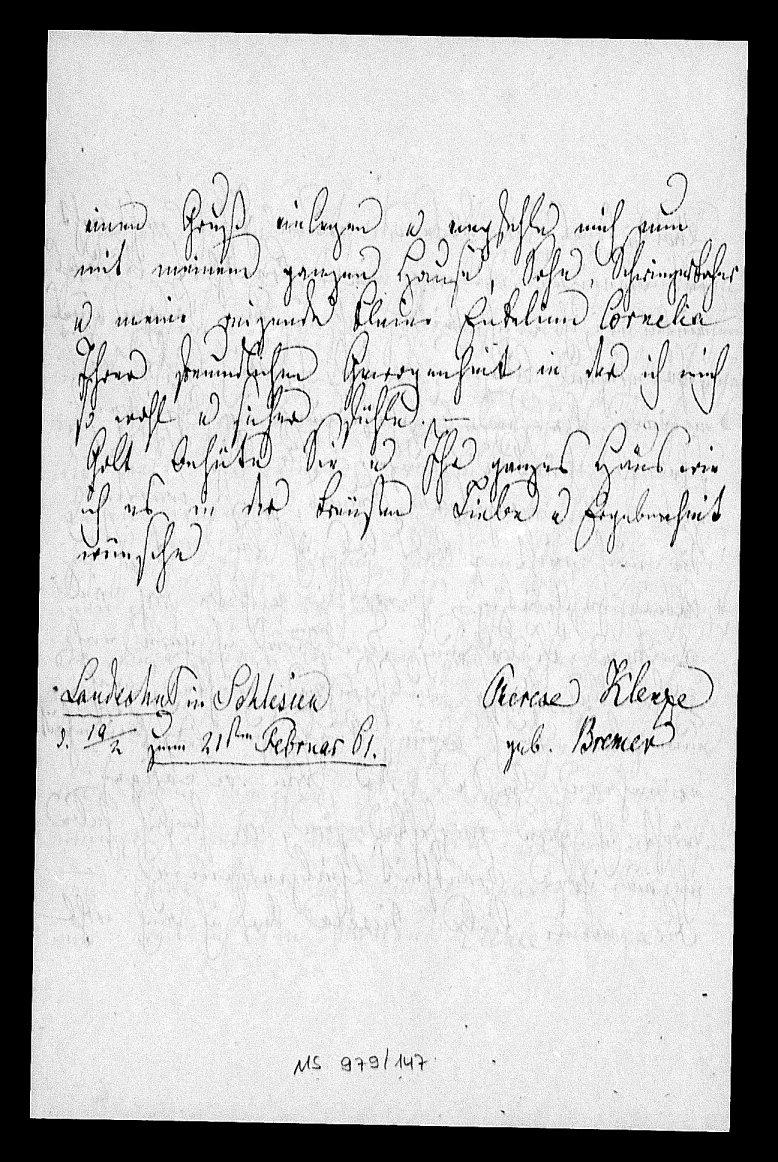 einen Gruß einlegen u empfehle mich nun
mit meinem ganzen Hause, Sohn, Schwiegertochter
u meine reizende kleine Enkelinn Cornelia
Ihrer freundlichen Gewogenheit in der ich mich
so wohl u sicher fühle. —
Gott behüte Sie u Ihr ganzes Haus wie
ich es in der treusten Liebe u Ergebenheit
wünsche
Landeshut in Schlesien
Therese Klenze
d. 19/2 zum 21sten Februar 61.
geb. Bremer
MS 979/147